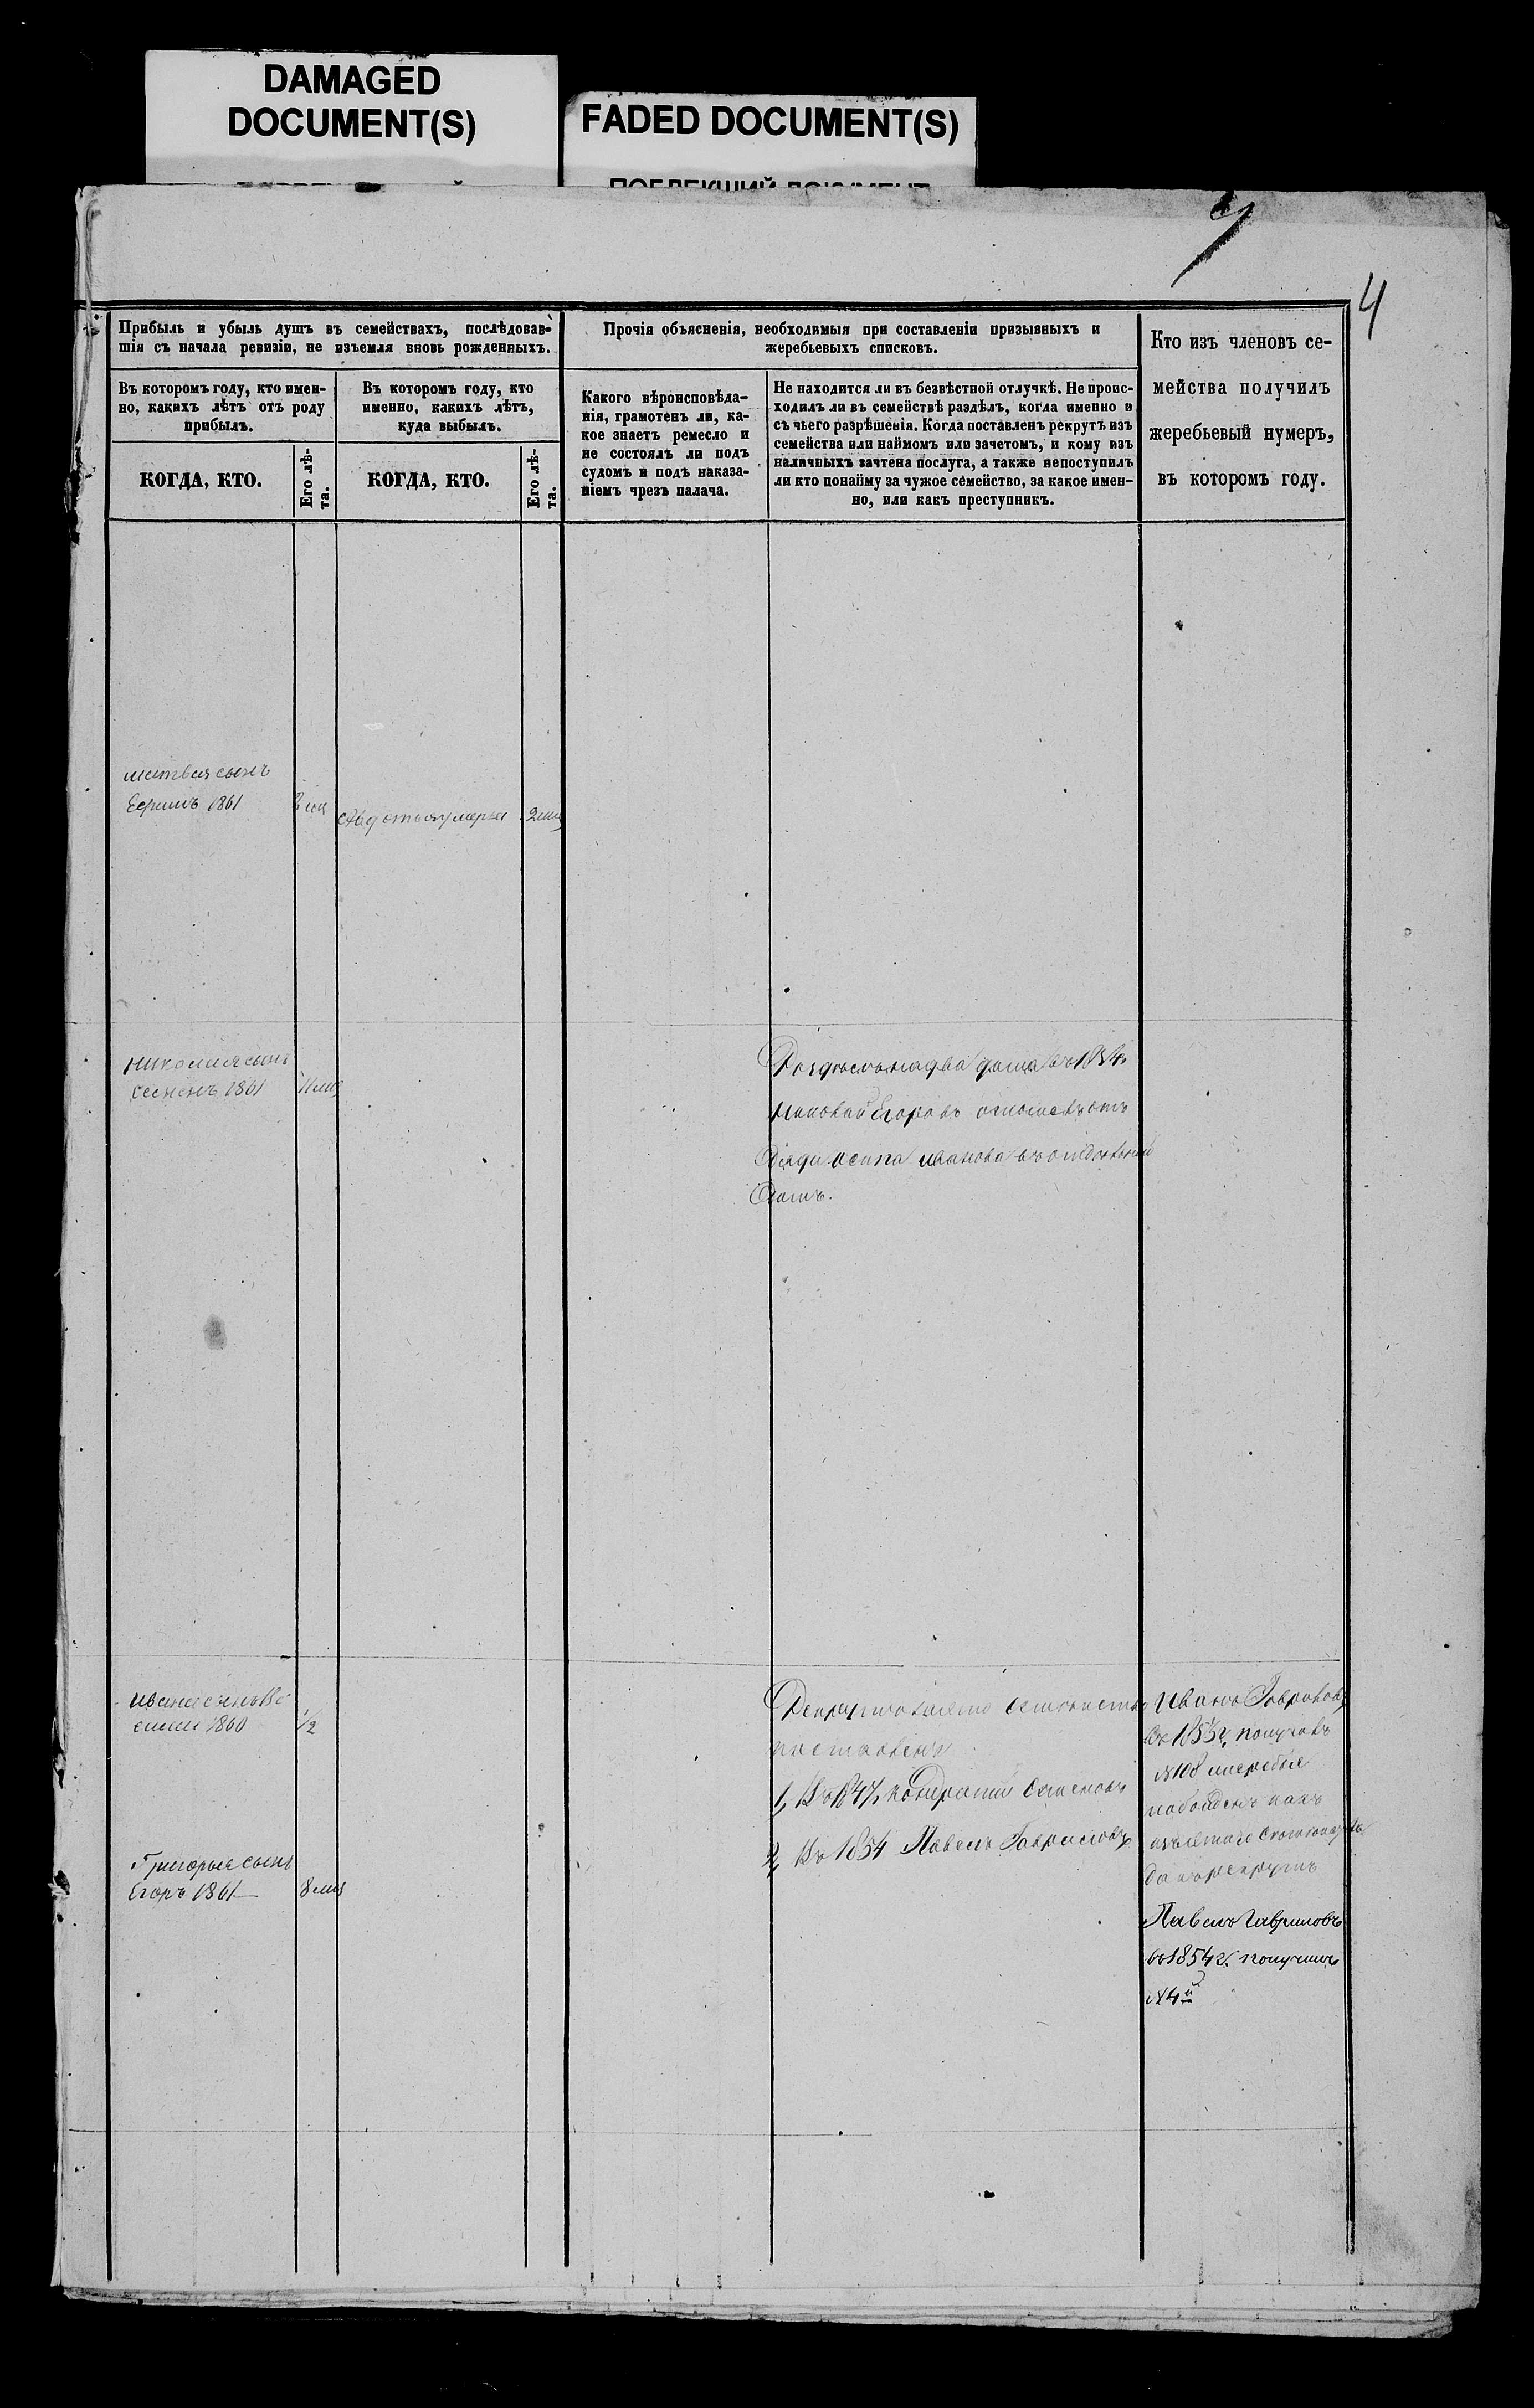 DAMAGED
DOCUMENT(S)
FADED DOCUMENT(S)
4
Прибыль и убыль душъ въ семействахъ, послѣдовав-
шія съ начала ревизіи, не изъемля вновь рожденныхъ.
Прочія объясненія, необходимыя при составленіи призывныхъ и
жеребьевыхъ списковъ.
Кто изъ членовъ се-
мейства получилъ
жеребьевый нумеръ,
въ которомъ году.
Въ которомъ году, кто имен-
но, какихъ лѣтъ отъ роду
прибылъ.
Въ которомъ году, кто
именно, какихъ лѣтъ,
куда выбылъ.
Какого вѣроисповѣда-
нія, грамотенъ ли, ка-
кое знаетъ ремесло и
не состоялъ ли подъ
судомъ и подъ наказа-
ніемъ чрезъ палача.
Не находится ли въ безвѣстной отлучкѣ. Не проис-
ходилъ ли въ семействѣ раздѣлъ, когда именно и
съ чьего разрѣшенія. Когда поставленъ рекрутъ изъ
семейства или наймомъ или зачетомъ, и кому изъ
наличныхъ зачтена послуга, а также непоступилъ
ли кто понайму за чужое семейство, за какое имен-
но, или какъ преступникъ.
КОГДА, КТО.
Его лѣ-
та.
КОГДА, КТО.
Его лѣ-
та.
матвея сынъ
Ефимъ 1861
Авдотья умерла 2 мц
николая сынъ
Семенъ 1861 11 мц
на два дома въ 1854
Егоровъ отошелъ отъ
Дяди осипа иванова въ
Домъ.
ивана сынъ Ва
силий 1860 1/2
Григорья сынъ
Егоръ 1861 8 мц
семейства
поставлены
1, Въ 1847, кондратий Семеновъ
2, Въ 1854 Павелъ Гавриловъ
Иванъ Гавриловъ
въ 185 г. получилъ
№ 108
взятъ
въ рекруты
Павелъ Гавриловъ
въ 1854 г. получилъ
№ 4й